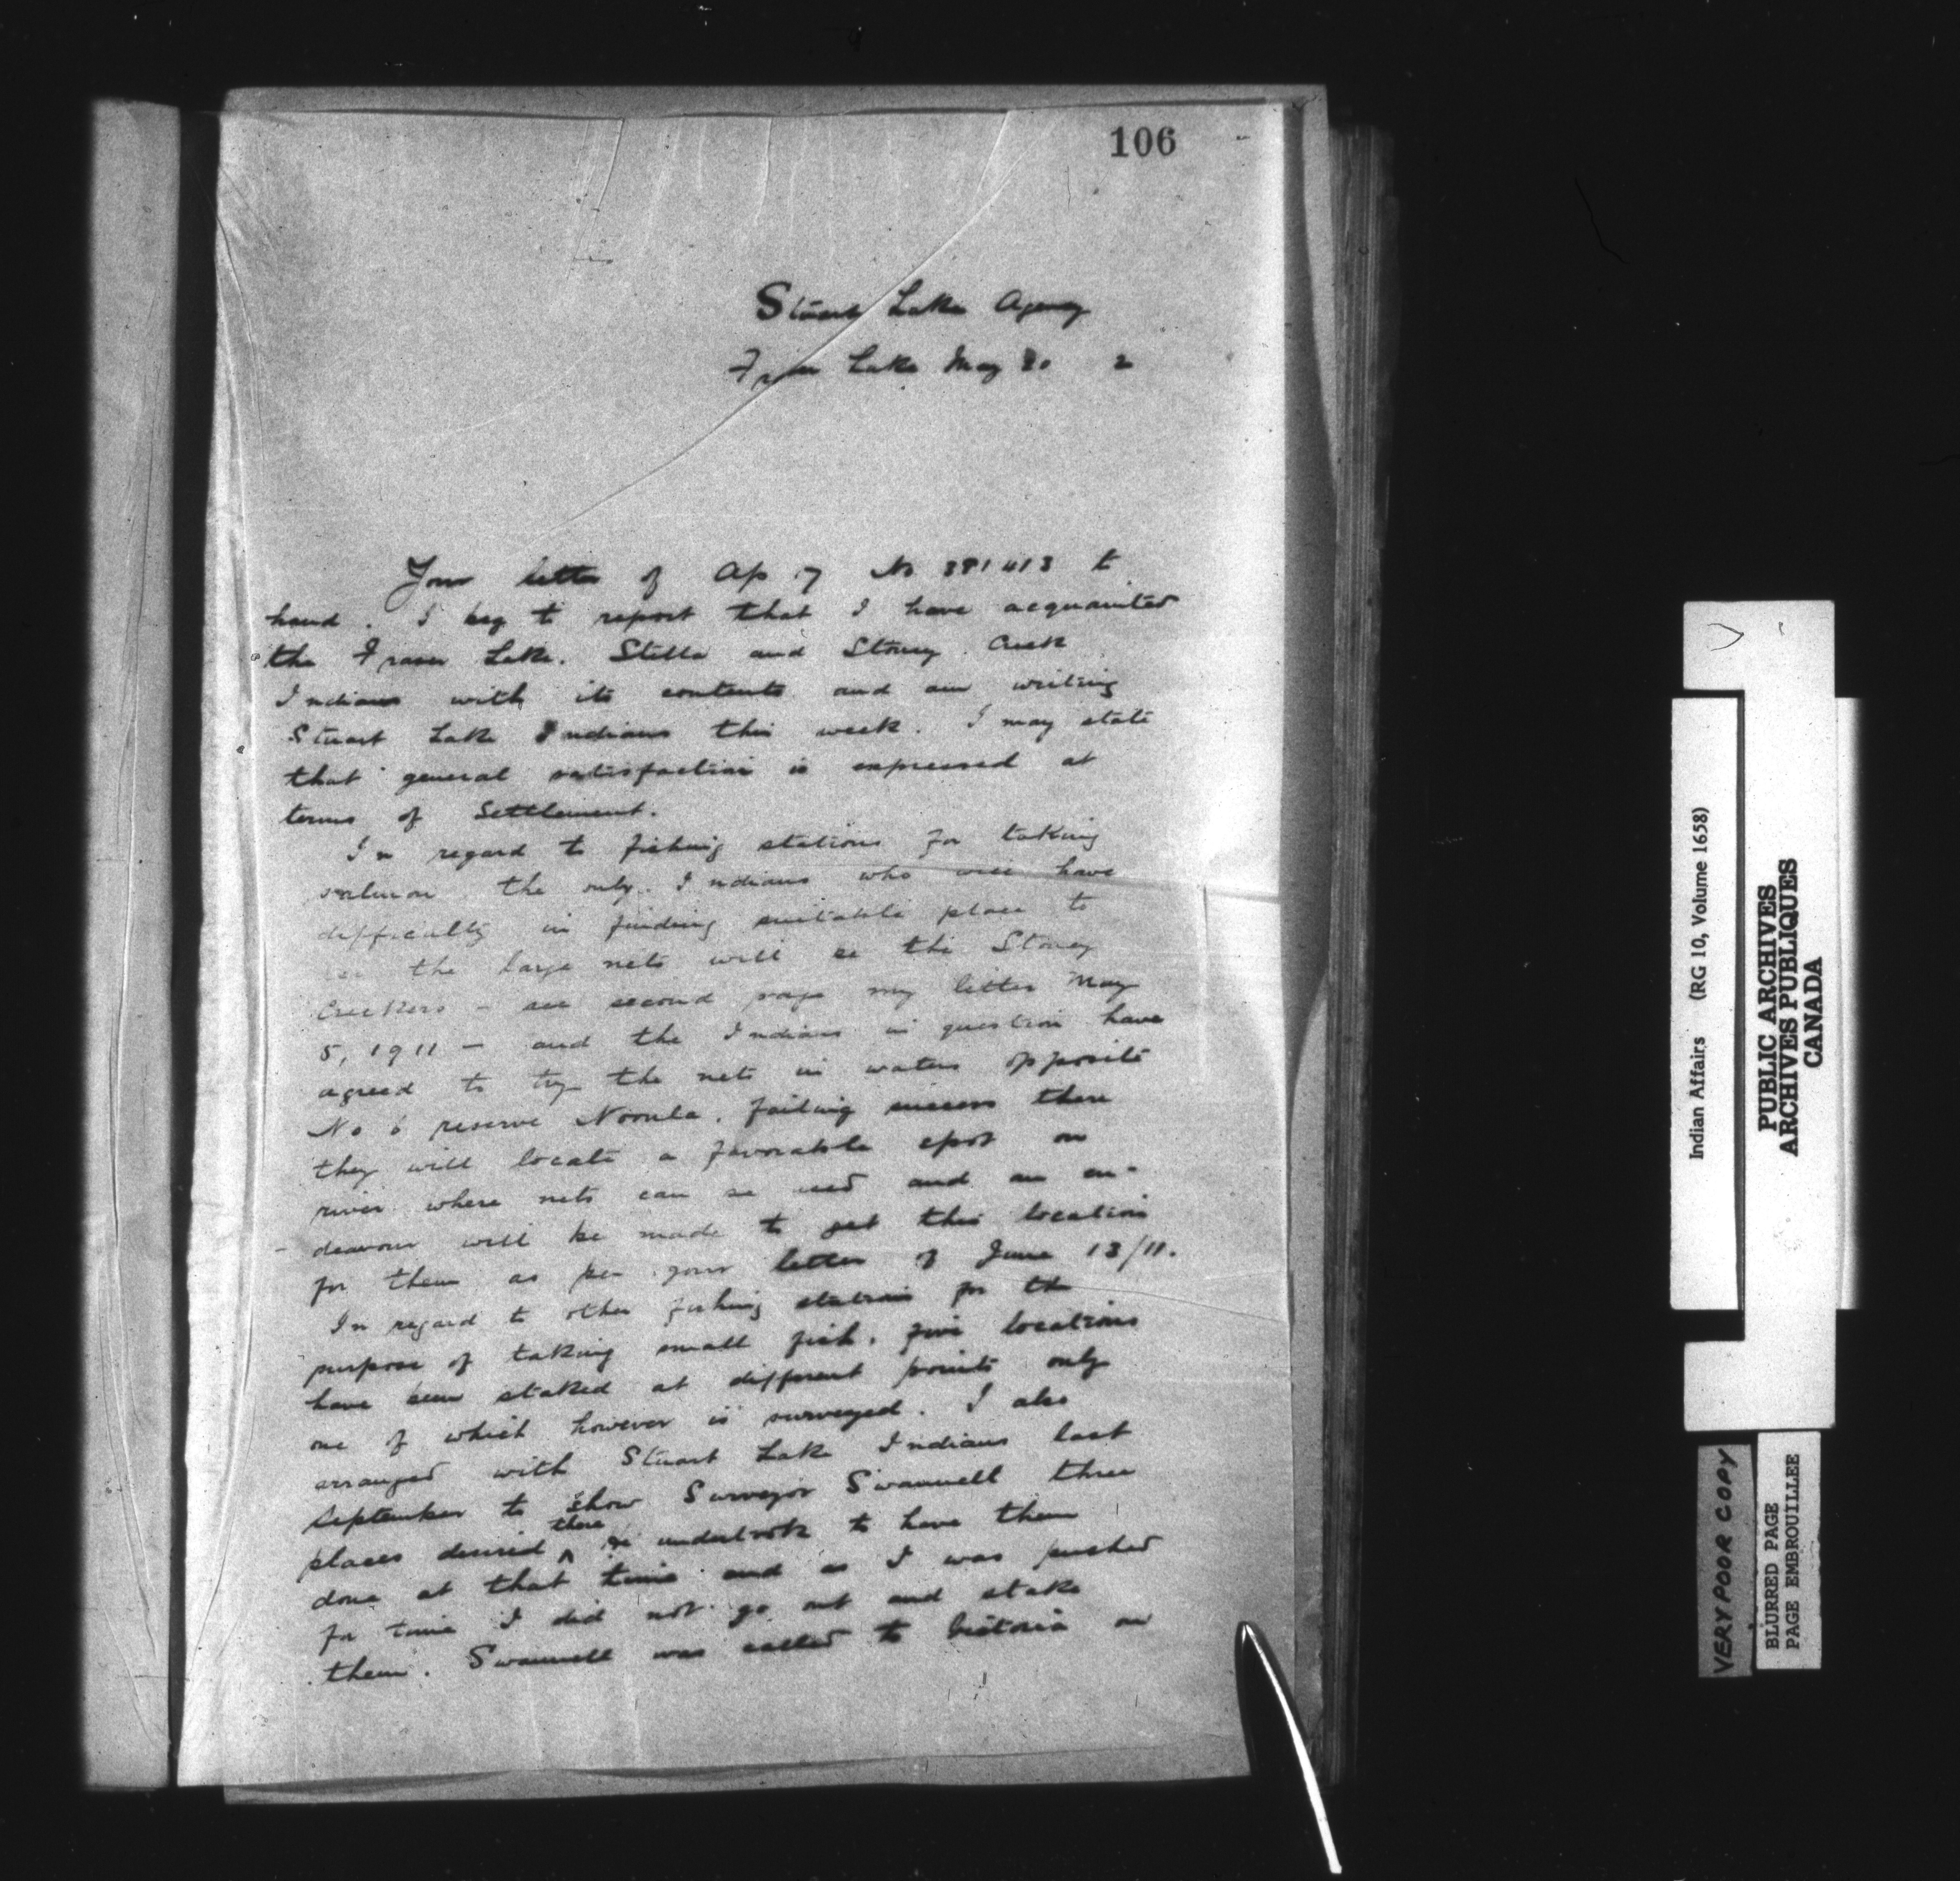 106
Stuart Lake Agency
Fraser Lake May 20 2
Your letter of Ap 17 No 381413 to
hand. I beg to report that I have acquainted
the Fraser Lake. Stella and Stoney Creek
Indians with its contents and am writing
Stuart Lake Indians this week. I may state
that general satisfaction is expressed at
terms of Settlement.
In regard to fishing stations for taking
salmon the only Indians who will have
difficulty in finding suitable place to
the large nets will be the Stoney
Creekers - see second page my letter May
5, 1911 - and the Indians in question have
agreed to try the nets in waters opposite
No 6 reserve Noonla. failing success there
they will locate a favorable spot on
river where nets can be used and an en-
deavour will be made to get this location
for them as per your letter of June 13/11.
In regard to other fishing stations for the
purpose of taking small fish, five locations
have been staked at different points only
one of which however is surveyed. I also
arranged with Stuart Lake Indians last
September to show Surveyor Swannell three
places desired there he undertook to have them
done at that time and as I was pushed
for time I did not go out and stake
them. Swannell was called to Victoria on
Indian Affairs (RG 10, Volume 1658)
PUBLIC ARCHIVES
ARCHIVES PUBLIQUES
CANADA
VERY POOR COPY
BLURRED PAGE
PAGE EMBROUILLEE